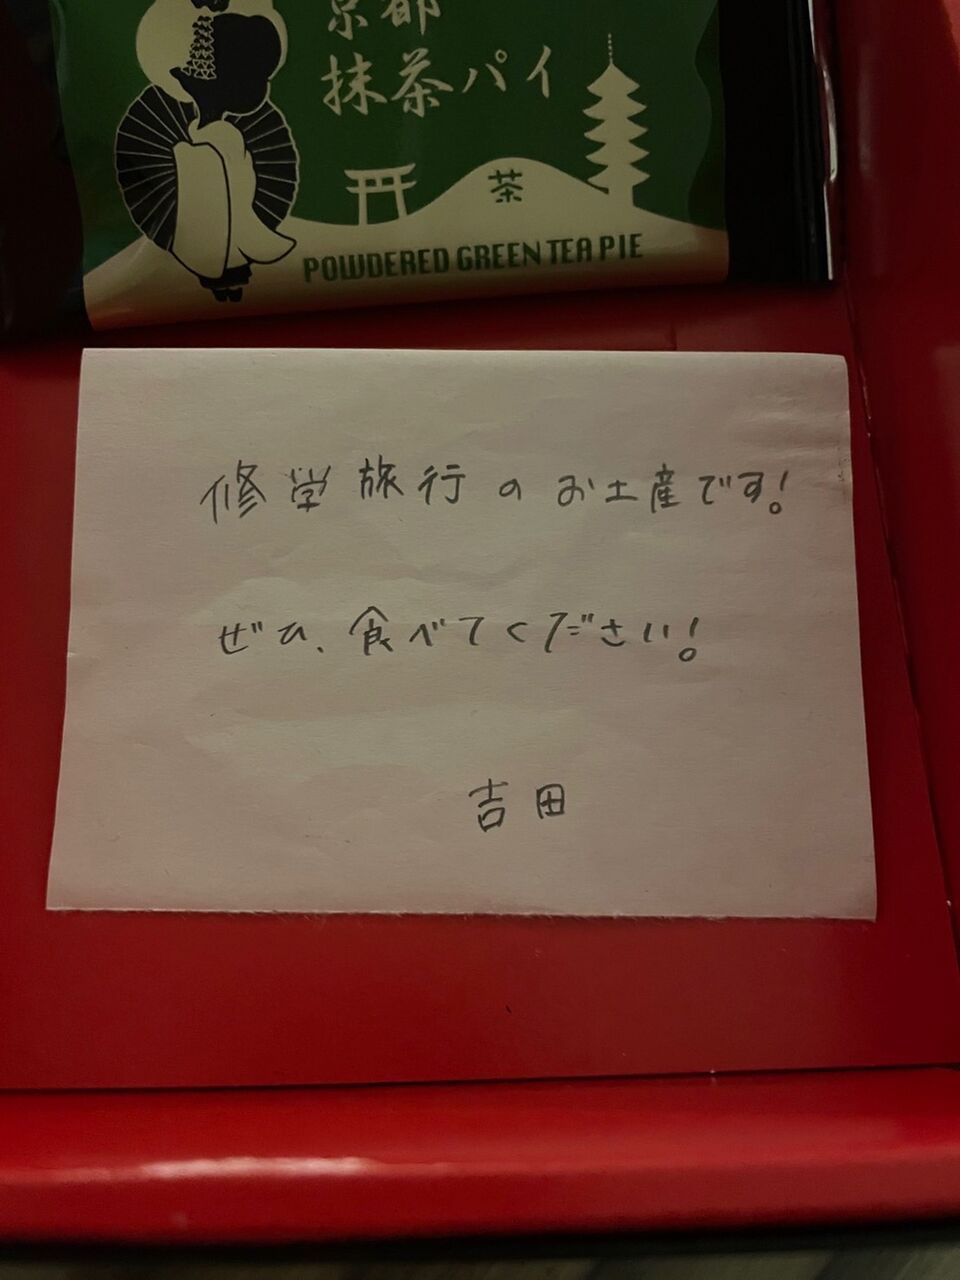 京都
抹茶パイ
茶
POWDERED GREEN TEA PIE
修学旅行のお土産です!
ぜひ、食べてください!
吉田